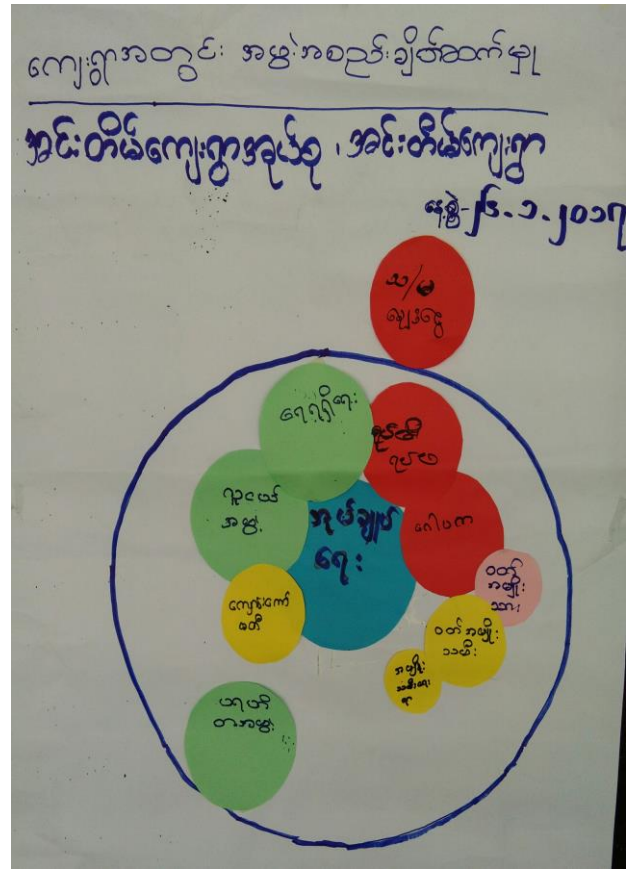 ကျေးရွာအတွင်း အဖွဲ့အစည်းချိတ်ဆက်မှု
အင်းတိမ်ကျေးရွာအုပ်စု ၊ အင်းတိမ်ကျေးရွာ
နေ့စွဲ-၂၆.၁.၂၀၁၇
သ/မ
ချေးငွေ
ရေရရှိရေး
ရပ်မိ
ရပ်ဖ
လူငယ်
အဖွဲ့
အုပ်ချုပ်
ရေး
ဂေါပက
ဝတ်
အမျိုး
သား
ကျောင်းကော်
မတီ
ဝတ်အမျိုး
သမီး
အမျိုး
သမီးရေး
ရာ
ပရဟိ
တအဖွဲ့